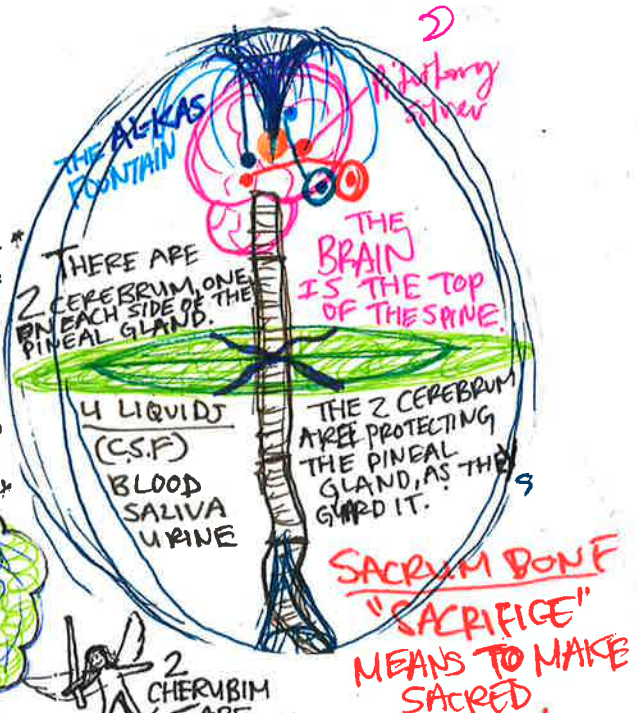 2
Pituitary
silver
THE AL-KAS
FOUNTAIN
THE
BRAIN
IS THE TOP
OF THE SPINE.
THERE ARE
2 CEREBRUM, ONE
ON EACH SIDE OF THE
PINEAL GLAND.
4 LIQUIDS
(C.S.F)
BLOOD
SALIVA
URINE
THE 2 CEREBRUM
ARE PROTECTING
THE PINEAL
GLAND, AS THEY
GUARD IT.
SACRUM BONE
"SACRIFICE"
MEANS TO MAKE
SACRED
2
CHERUBIM
ARE